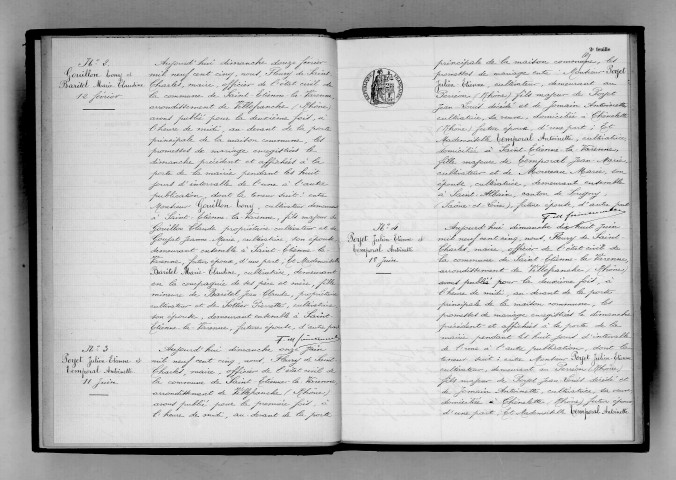 N° 2.
Gouillon Tony et
Baritel Marie Claudine
12 février
Aujourd'hui dimanche douze février
mil neuf cent cinq, nous, Fleury de Saint
Charles, maire, officier de l'état civil de
la commune de Saint Etienne la Varenne
arrondissement de Villefranche (Rhône)
avons publié pour la deuxième fois, à
l'heure de midi, au devant de la porte
principale de la maison commune, les
promesses de mariage enregistrées le
dimanche précédent et affichées à la
porte de la mairie pendant les huit
jours d'intervalle de l'une à l'autre
publication, dont la teneur suit: entre
Monsieur Gouillon Tony, cultivateur demeurant
à Saint-Etienne la Varenne, fils majeur de
Gouillon Claude propriétaire cultivateur et de
Jeanne Marie, cultivatrice, son épouse,
demeurant ensemble à Saint Etienne la
Varenne, futur époux, d'une part; Et Mademoiselle
Baritel Marie Claudine, cultivatrice, demeurant
en la compagnie de ses père et mère, fille
mineure de Baritel Jean Claude, propriétaire
cultivateur et de Pierrette, cultivatrice
son épouse, demeurant ensemble à Saint
Etienne la Varenne, future épouse, d'autre part
N° 3
Poyet Julien Etienne et
Temporal Antoinette
11 Juin
Aujourd'hui dimanche onze Juin
mil neuf cent cinq, nous, Fleury de Saint
Charles, maire, officier de l'état civil de
la commune de Saint Etienne la Varenne
arrondissement de Villefranche (Rhône)
avons publié pour la première fois, à
l'heure de midi, au devant de la porte
2e feuille
principale de la maison commune, les
promesses de mariage entre: Monsieur Poyet
Julien Etienne, cultivateur, demeurant au
Perréon (Rhône) fils majeur de Poyet
Jean Louis décédé et de Jomain Antoinette
cultivatrice, sa veuve, domiciliée à Chénelette
(Rhône) futur époux, d'une part; Et
Mademoiselle Temporal Antoinette, cultivatrice,
domiciliée à Saint-Etienne la Varenne,
fille majeure de Temporal Jean Marie
cultivateur et de Marie, son
épouse, cultivatrice, demeurant ensemble
à Saint canton de
(Saône et Loire), future épouse, d'autre part
N° 4
Poyet Julien Etienne et
Temporal Antoinette
18 Juin
Aujourd'hui dimanche dix huit Juin
mil neuf cent cinq, nous, Fleury de Saint
Charles, maire, officier de l'état civil de
la commune de Saint Etienne la Varenne,
arrondissement de Villefranche (Rhône)
avons publié pour la deuxième fois, à
l'heure de midi, au devant de la porte
principale de la maison commune, les
promesses de mariage enregistrées le dimanche
précédent et affichées à la porte de la
mairie pendant les huit jours d'intervalle
de l'une à l'autre publication, dont la
teneur suit: entre Monsieur Poyet Julien Etienne
cultivateur, demeurant au Perréon (Rhône)
fils majeur de Poyet Jean Louis décédé et
de Jomain Antoinette, cultivatrice, sa veuve
domiciliée à Chénelette (Rhône) futur époux
d'une part; Et Mademoiselle Temporal Antoinette